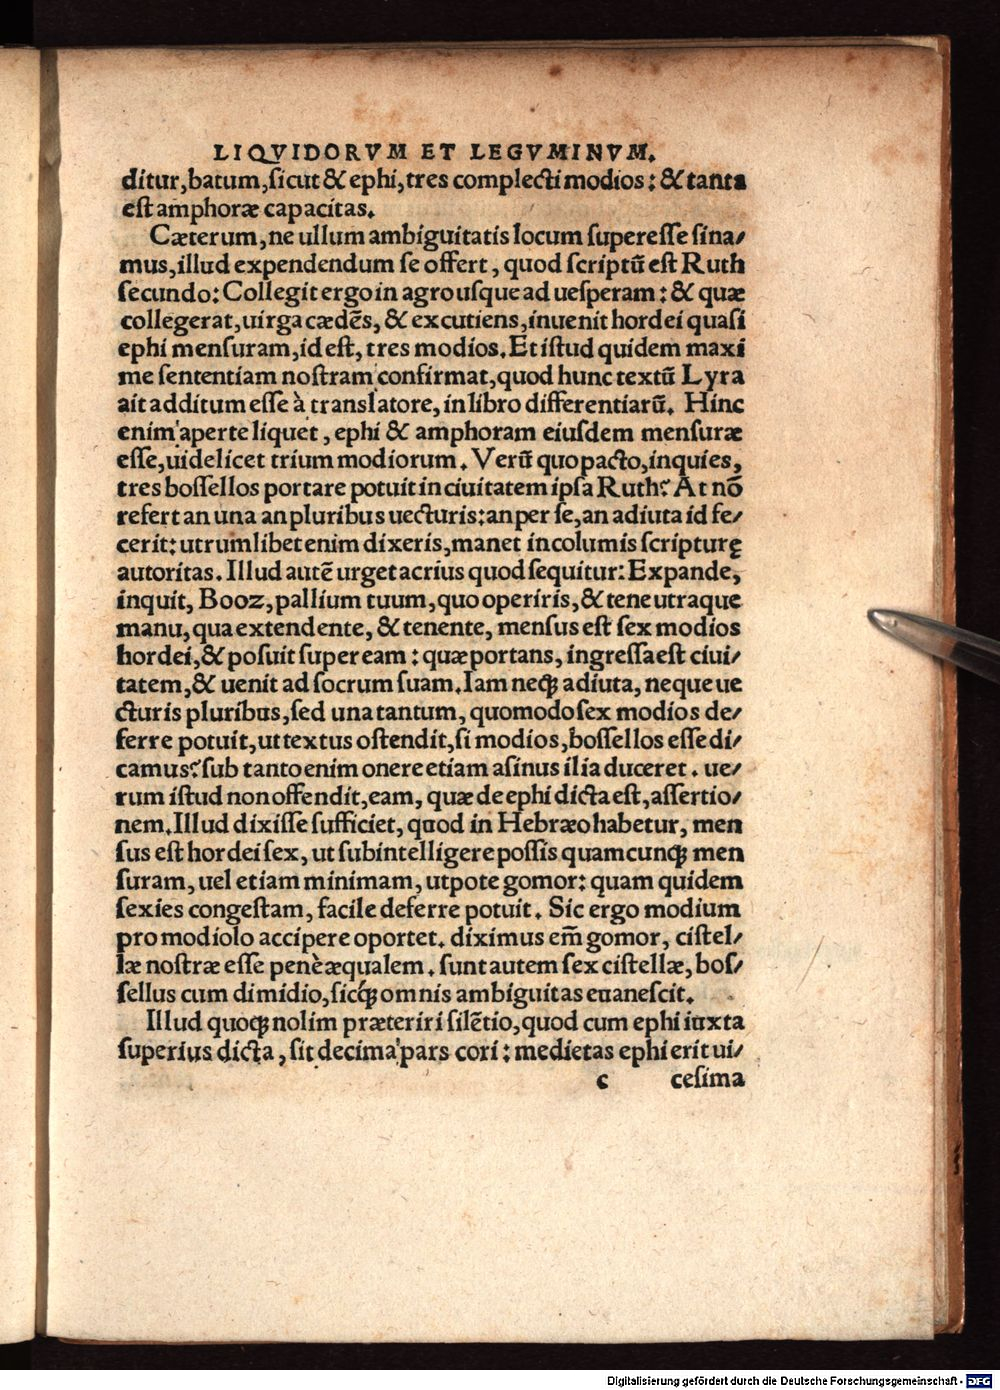 LIQVIDORVM ET LEGVMINVM.
ditur, batum, ſicut & ephi, tres complecti modios: & tanta
eſt amphoræ capacitas.
Cæterum, ne ullum ambiguitatis locum ſupereſſe ſina/
mus, illud expendendum ſe offert, quod ſcriptū eſt Ruth
ſecundo: Collegit ergo in agro uſque ad ueſperam: & quæ
collegerat, uirga cædēs, & excutiens, inuenit hordei quaſi
ephi menſuram, id eſt, tres modios. Et iſtud quidem maxi
me ſententiam noſtram confirmat, quod hunc textū Lyra
ait additum eſſe à translatore, in libro differentiarū. Hinc
enim aperte liquet, ephi & amphoram eiuſdem menſuræ
eſſe, uidelicet trium modiorum. Verū quo pacto, inquies,
tres boſſellos portare potuit in ciuitatem ipſa Ruth? At nō
refert an una an pluribus uecturis: an per ſe, an adiuta id fe/
cerit: utrumlibet enim dixeris, manet incolumis ſcripturę
autoritas. Illud autē urget acrius quod ſequitur: Expande,
inquit, Booz, pallium tuum, quo operiris, & tene utraque
manu, qua extendente, & tenente, menſus eſt ſex modios
hordei, & poſuit ſuper eam: quæ portans, ingreſſa eſt ciui/
tatem, & uenit ad ſocrum ſuam. Iam neqꝫ adiuta, neque ue
cturis pluribus, ſed una tantum, quomodo ſex modios de/
ferre potuit, ut textus oſtendit, ſi modios, boſſellos eſſe di/
camus? ſub tanto enim onere etiam aſinus ilia duceret. ue/
rum iſtud non offendit, eam, quæ de ephi dicta eſt, aſſertio/
nem. Illud dixiſſe ſufficiet, quod in Hebræo habetur, men
ſus eſt hordei ſex, ut ſubintelligere poſſis quamcunqꝫ men
ſuram, uel etiam minimam, utpote gomor: quam quidem
ſexies congeſtam, facile deferre potuit. Sic ergo modium
pro modiolo accipere oportet. diximus em̃ gomor, ciſtel/
læ noſtræ eſſe penè æqualem. ſunt autem ſex ciſtellæ, boſ/
ſellus cum dimidio, ſicqꝫ́ omnis ambiguitas euaneſcit.
Illud quoqꝫ nolim præteriri ſilētio, quod cum ephi iuxta
ſuperius dicta, ſit decima pars cori: medietas ephi erit ui/
c ceſima
Digitalisierung gefördert durch die Deutsche Forschungsgemeinschaft - DFG